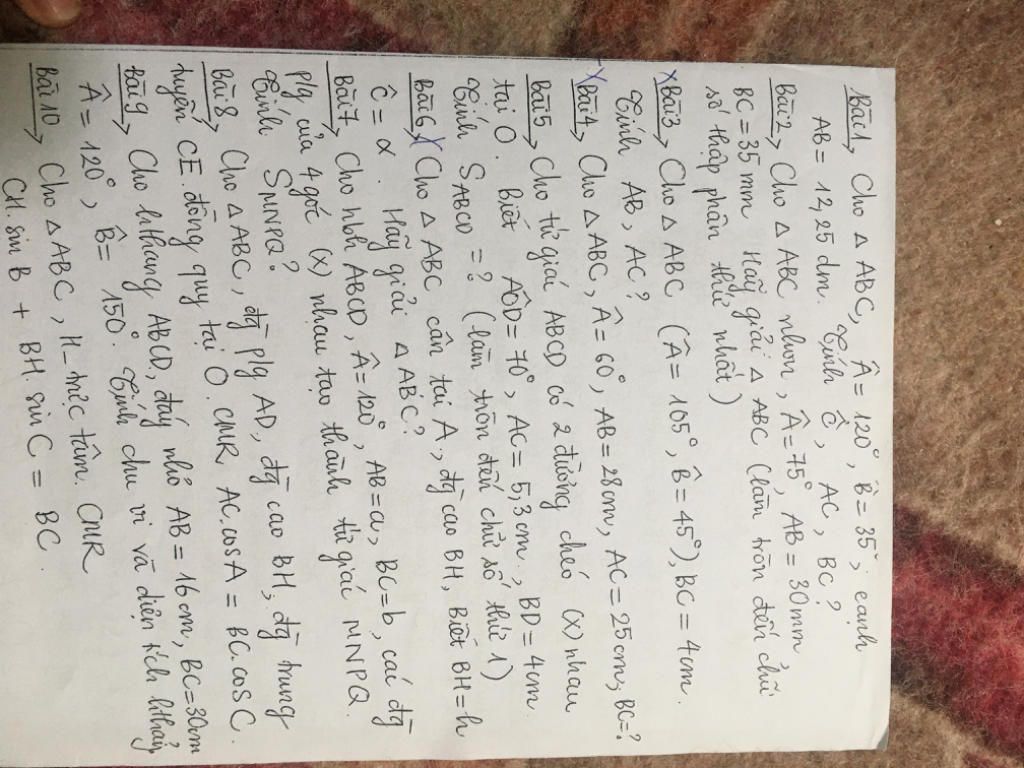 Bài 1 Cho △ ABC, Â = 120°, B̂ = 35°, cạnh
AB = 12,25 dm. Tính Ĉ, AC, BC?
Bài 2 Cho △ ABC nhọn, Â = 75°, AB = 30mm,
BC = 35 mm Hãy giải △ ABC (làm tròn đến chữ
số thập phân thứ nhất)
x Bài 3 Cho △ ABC (Â = 105°, B̂ = 45°), BC = 4cm.
Tính AB, AC?
x Bài 4 Cho △ ABC, Â = 60°, AB = 28cm, AC = 25cm, BC = ?
Bài 5 Cho tứ giác ABCD có 2 đường chéo (x) nhau
tại O. Biết AÔD = 70°, AC = 5,3cm, BD = 4cm.
Tính SABCD = ? (làm tròn đến chữ số thứ 1)
Bài 6 x Cho △ ABC cân tại A, đg cao BH, Biết BH = h
Ĉ = α. Hãy giải △ ABC?
Bài 7 Cho hbh ABCD, Â = 120°, AB = a, BC = b, các đg
p/g của 4 góc (x) nhau tạo thành tứ giác MNPQ.
Tính SMNPQ?
Bài 8 Cho △ ABC, đg p/g AD, đg cao BH, đg trung
tuyến CE đồng quy tại O. CMR AC.cosA = BC.cosC.
Bài 9 Cho hthang ABCD, đáy nhỏ AB = 16 cm, BC = 30cm
Â = 120°, B̂ = 150°. Tính chu vi và diện tích hthang
Bài 10 Cho △ ABC, H- trực tâm. CMR
CH. sin B + BH. sin C = BC.